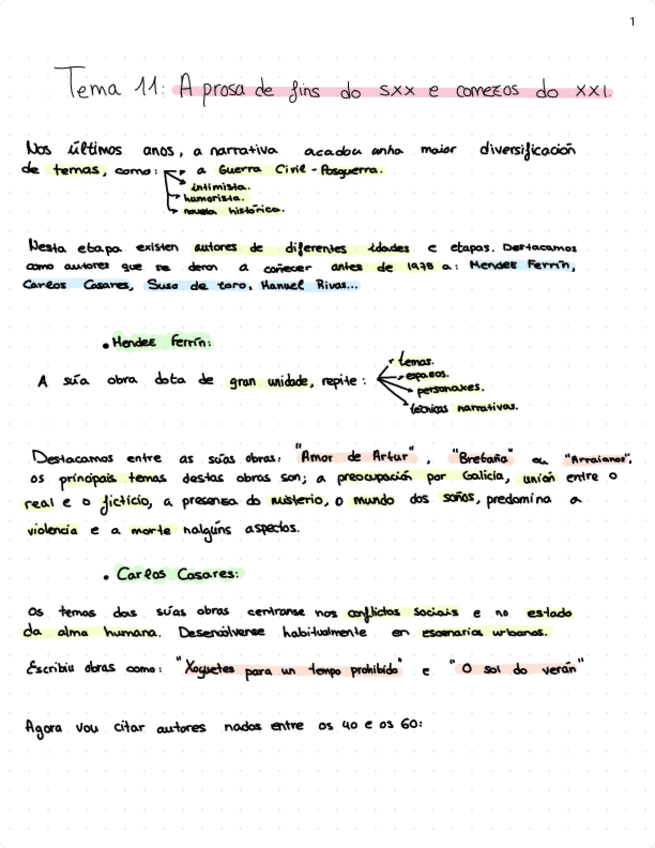 1
Tema 11: A prosa de fins do sxx e comezos do xxI.
Nos últimos anos, a narrativa acadou unha maior diversificación
de temas, como: a Guerra Civil - Posguerra.
intimista.
humorista.
novela histórica.
Nesta etapa existen autores de diferentes idades e etapas. Destacamos
como autores que se deron a coñecer antes de 1978 a: Mendez Ferrín,
Carlos Casares, Suso de toro, Manuel Rivas...
• Mendez Ferrín:
A súa obra dota de gran unidade, repite:
temas.
espazos.
personaxes.
técnicas narrativas.
Destacamos entre as súas obras: "Amor de Artur", "Bretaña" ou "Arraianos",
os principais temas destas obras son; a preocupación por Galicia, unión entre o
real e o ficticio, a presensa do misterio, o mundo dos soños, predomina a
violencia e a morte nalgúns aspectos.
• Carlos Casares:
Os temas das súas obras centranse nos conflictos sociais e no estado
da alma humana. Desenvólvense habitualmente en escenarios urbanos.
Escribiu obras como: "Xoguetes para un tempo prohibido" e "O sol do verán"
Agora vou citar autores nados entre os 40 e os 60: